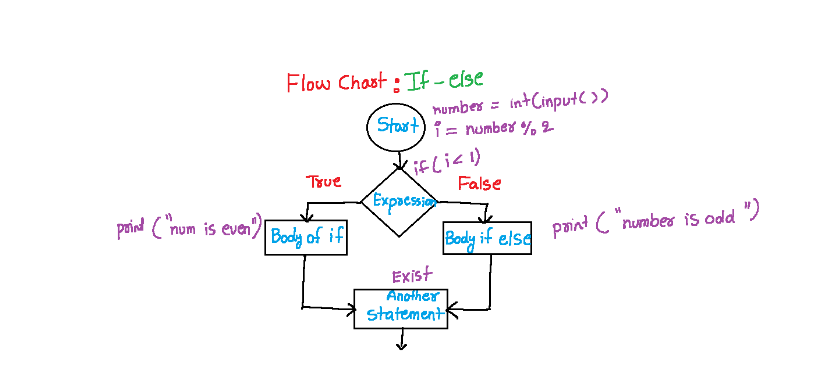 Flow Chart : If-else
number = int(input())
Start
i = number % 2
if(i < 1)
True
False
Expression
print ("num is even")
Body of if
Body if else
print ("number is odd")
Exist
Another
Statement